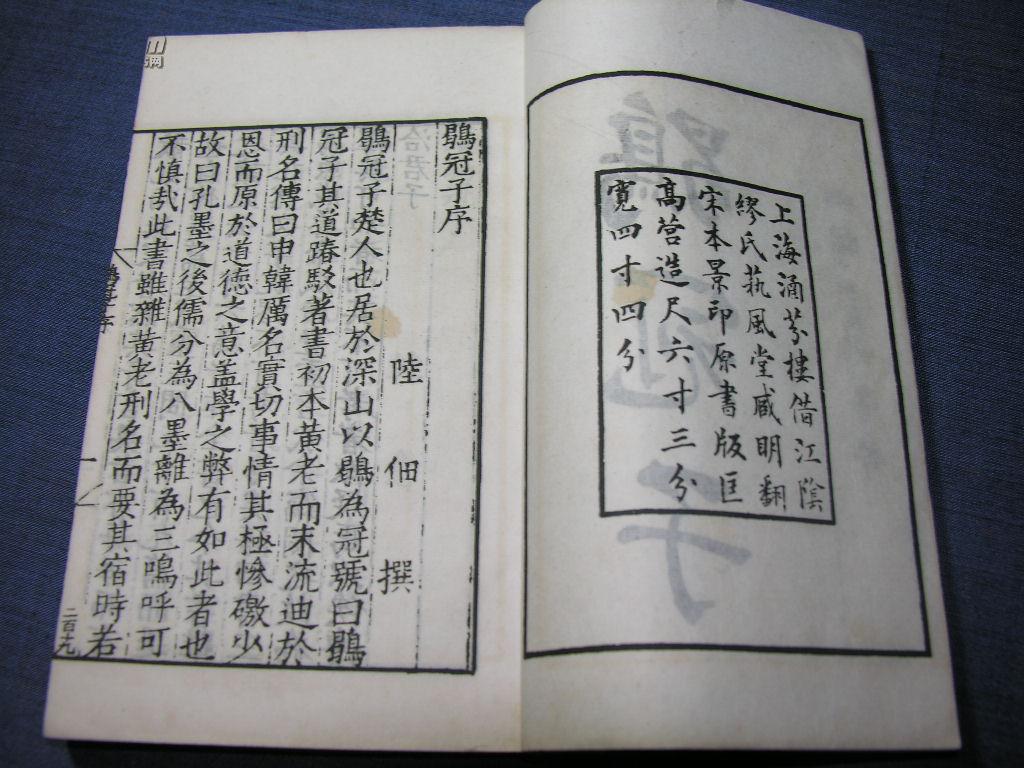 上海涵芬樓借江陰
繆氏蓺風堂藏明翻
宋本景印原書版匡
高營造尺六寸三分
寬四寸四分
鶡冠子序
陸佃撰
鶡冠子楚人也居於深山以鶡為冠號曰鶡
冠子其道踳駁著書初本黃老而末流迪於
刑名傳曰申韓厲名實切事情其極慘礉少
恩而原於道德之意盖學之弊有如此者也
故曰孔墨之後儒分為八墨離為三嗚呼可
不慎㢤此書雖雜黃老刑名而要其宿時若
二百九